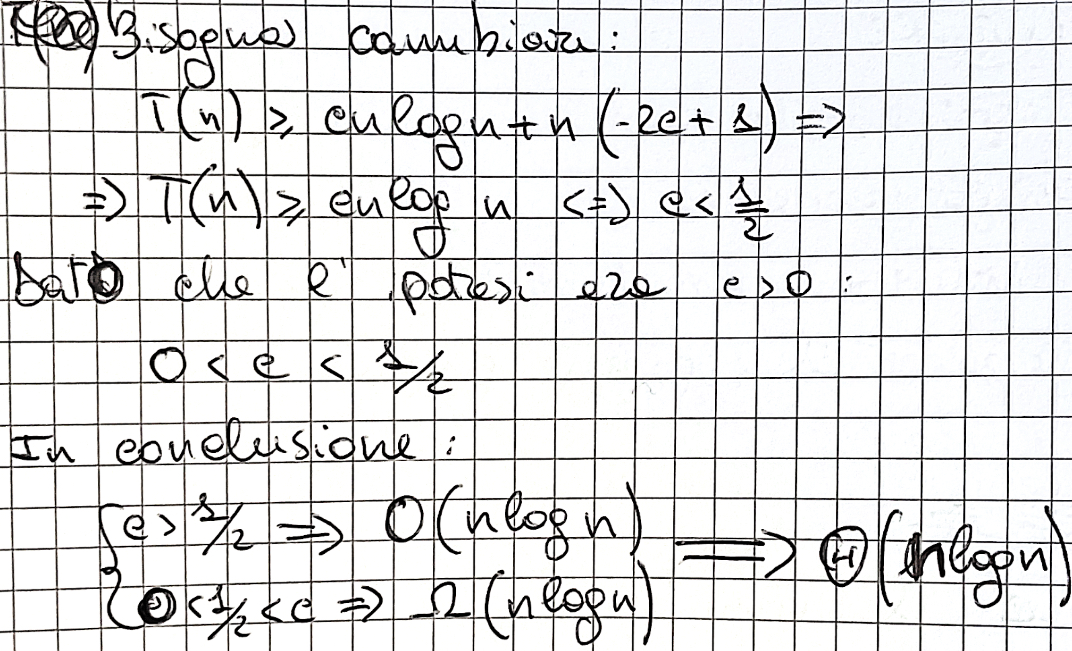 Bisogna cambiare:
T(n) ≥ cn log n + n (-2c + 1) =>
=> T(n) ≥ cn log n <=> c < 1/2
Dato che l'ipotesi era c > 0 :
0 < c < 1/2
In conclusione :
{ c > 1/2 => O(n log n)
=> Θ(n log n)
0 < 1/2 < c => Ω(n log n)